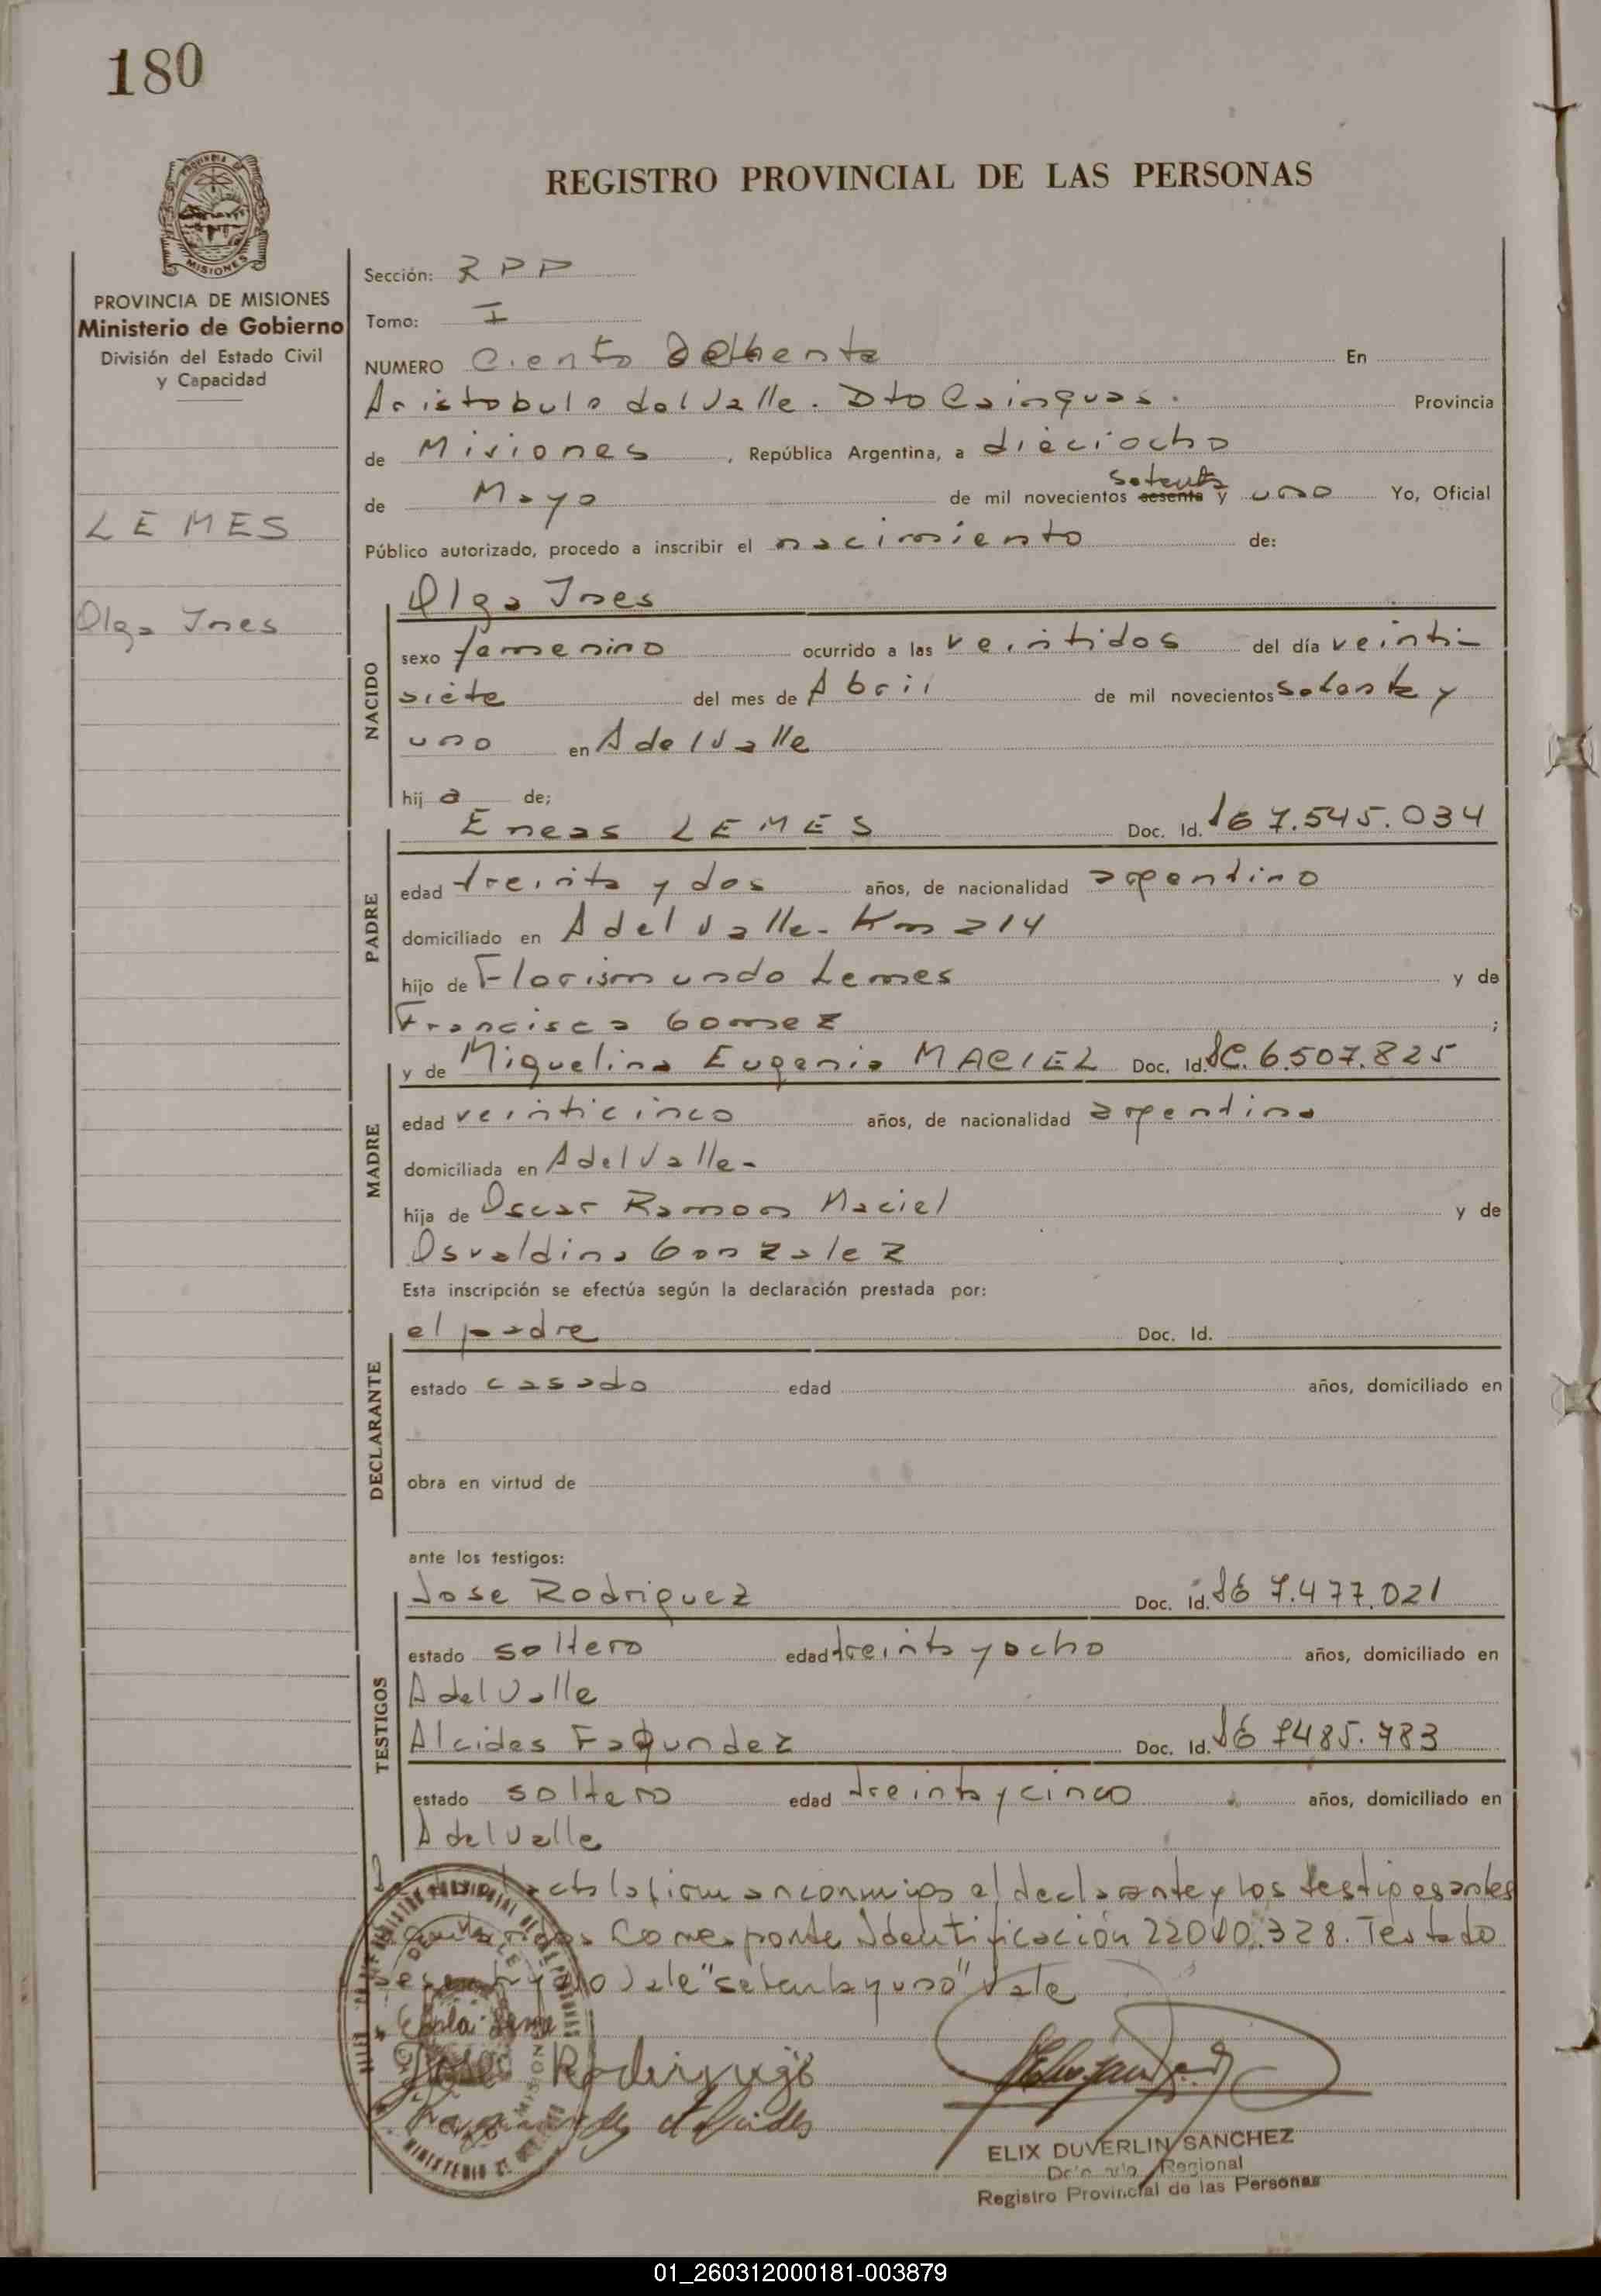 180
REGISTRO PROVINCIAL DE LAS PERSONAS
PROVINCIA DE MISIONES
MISIONES
PROVINCIA DE MISIONES
Ministerio de Gobierno
División del Estado Civil
y Capacidad
LEMES
Olga Ines
Sección: RPP
Tomo: I
NUMERO Ciento Ochenta En
Aristobulo del Valle. Dto Cainguas. Provincia
de Misiones, República Argentina, a dieciocho
de Mayo de mil novecientos sesenta setenta y uno Yo, Oficial
Público autorizado, procedo a inscribir el nacimiento de:
NACIDO
Olga Ines
sexo femenino ocurrido a las veintidos del día veinti-
siete del mes de Abril de mil novecientos setenta y
uno en A del Valle
hij a de;
PADRE
Eneas LEMES Doc. Id. 7.545.034
edad treinta y dos años, de nacionalidad argentino
domiciliado en A del Valle- Km 214
hijo de Florismundo Lemes y de
Francisca Gomez ;
MADRE
y de Miguelina Eugenia MACIEL Doc. Id. 6.507.825
edad veinticinco años, de nacionalidad argentina
domiciliada en A del Valle-
hija de Oscar Ramon Maciel y de
Osvaldina Gonzalez
Esta inscripción se efectúa según la declaración prestada por:
DECLARANTE
el padre Doc. Id.
estado casado edad años, domiciliado en
obra en virtud de
ante los testigos:
TESTIGOS
Jose Rodriguez Doc. Id. 7.477.021
estado soltero edad treinta y ocho años, domiciliado en
A del Valle
Alcides Fagundez Doc. Id. 7485.783
estado soltero edad treinta y cinco años, domiciliado en
A del Valle
acta la firman conmigo el declarante y los testigos antes
Corresponde Identificación 22040.328. Testado
Vale "setenta y uno" Vale
Jose Rodriguez
ELIX DUVERLIN SANCHEZ
Regional
Registro Provincial de las Personas
01_260312000181-003879